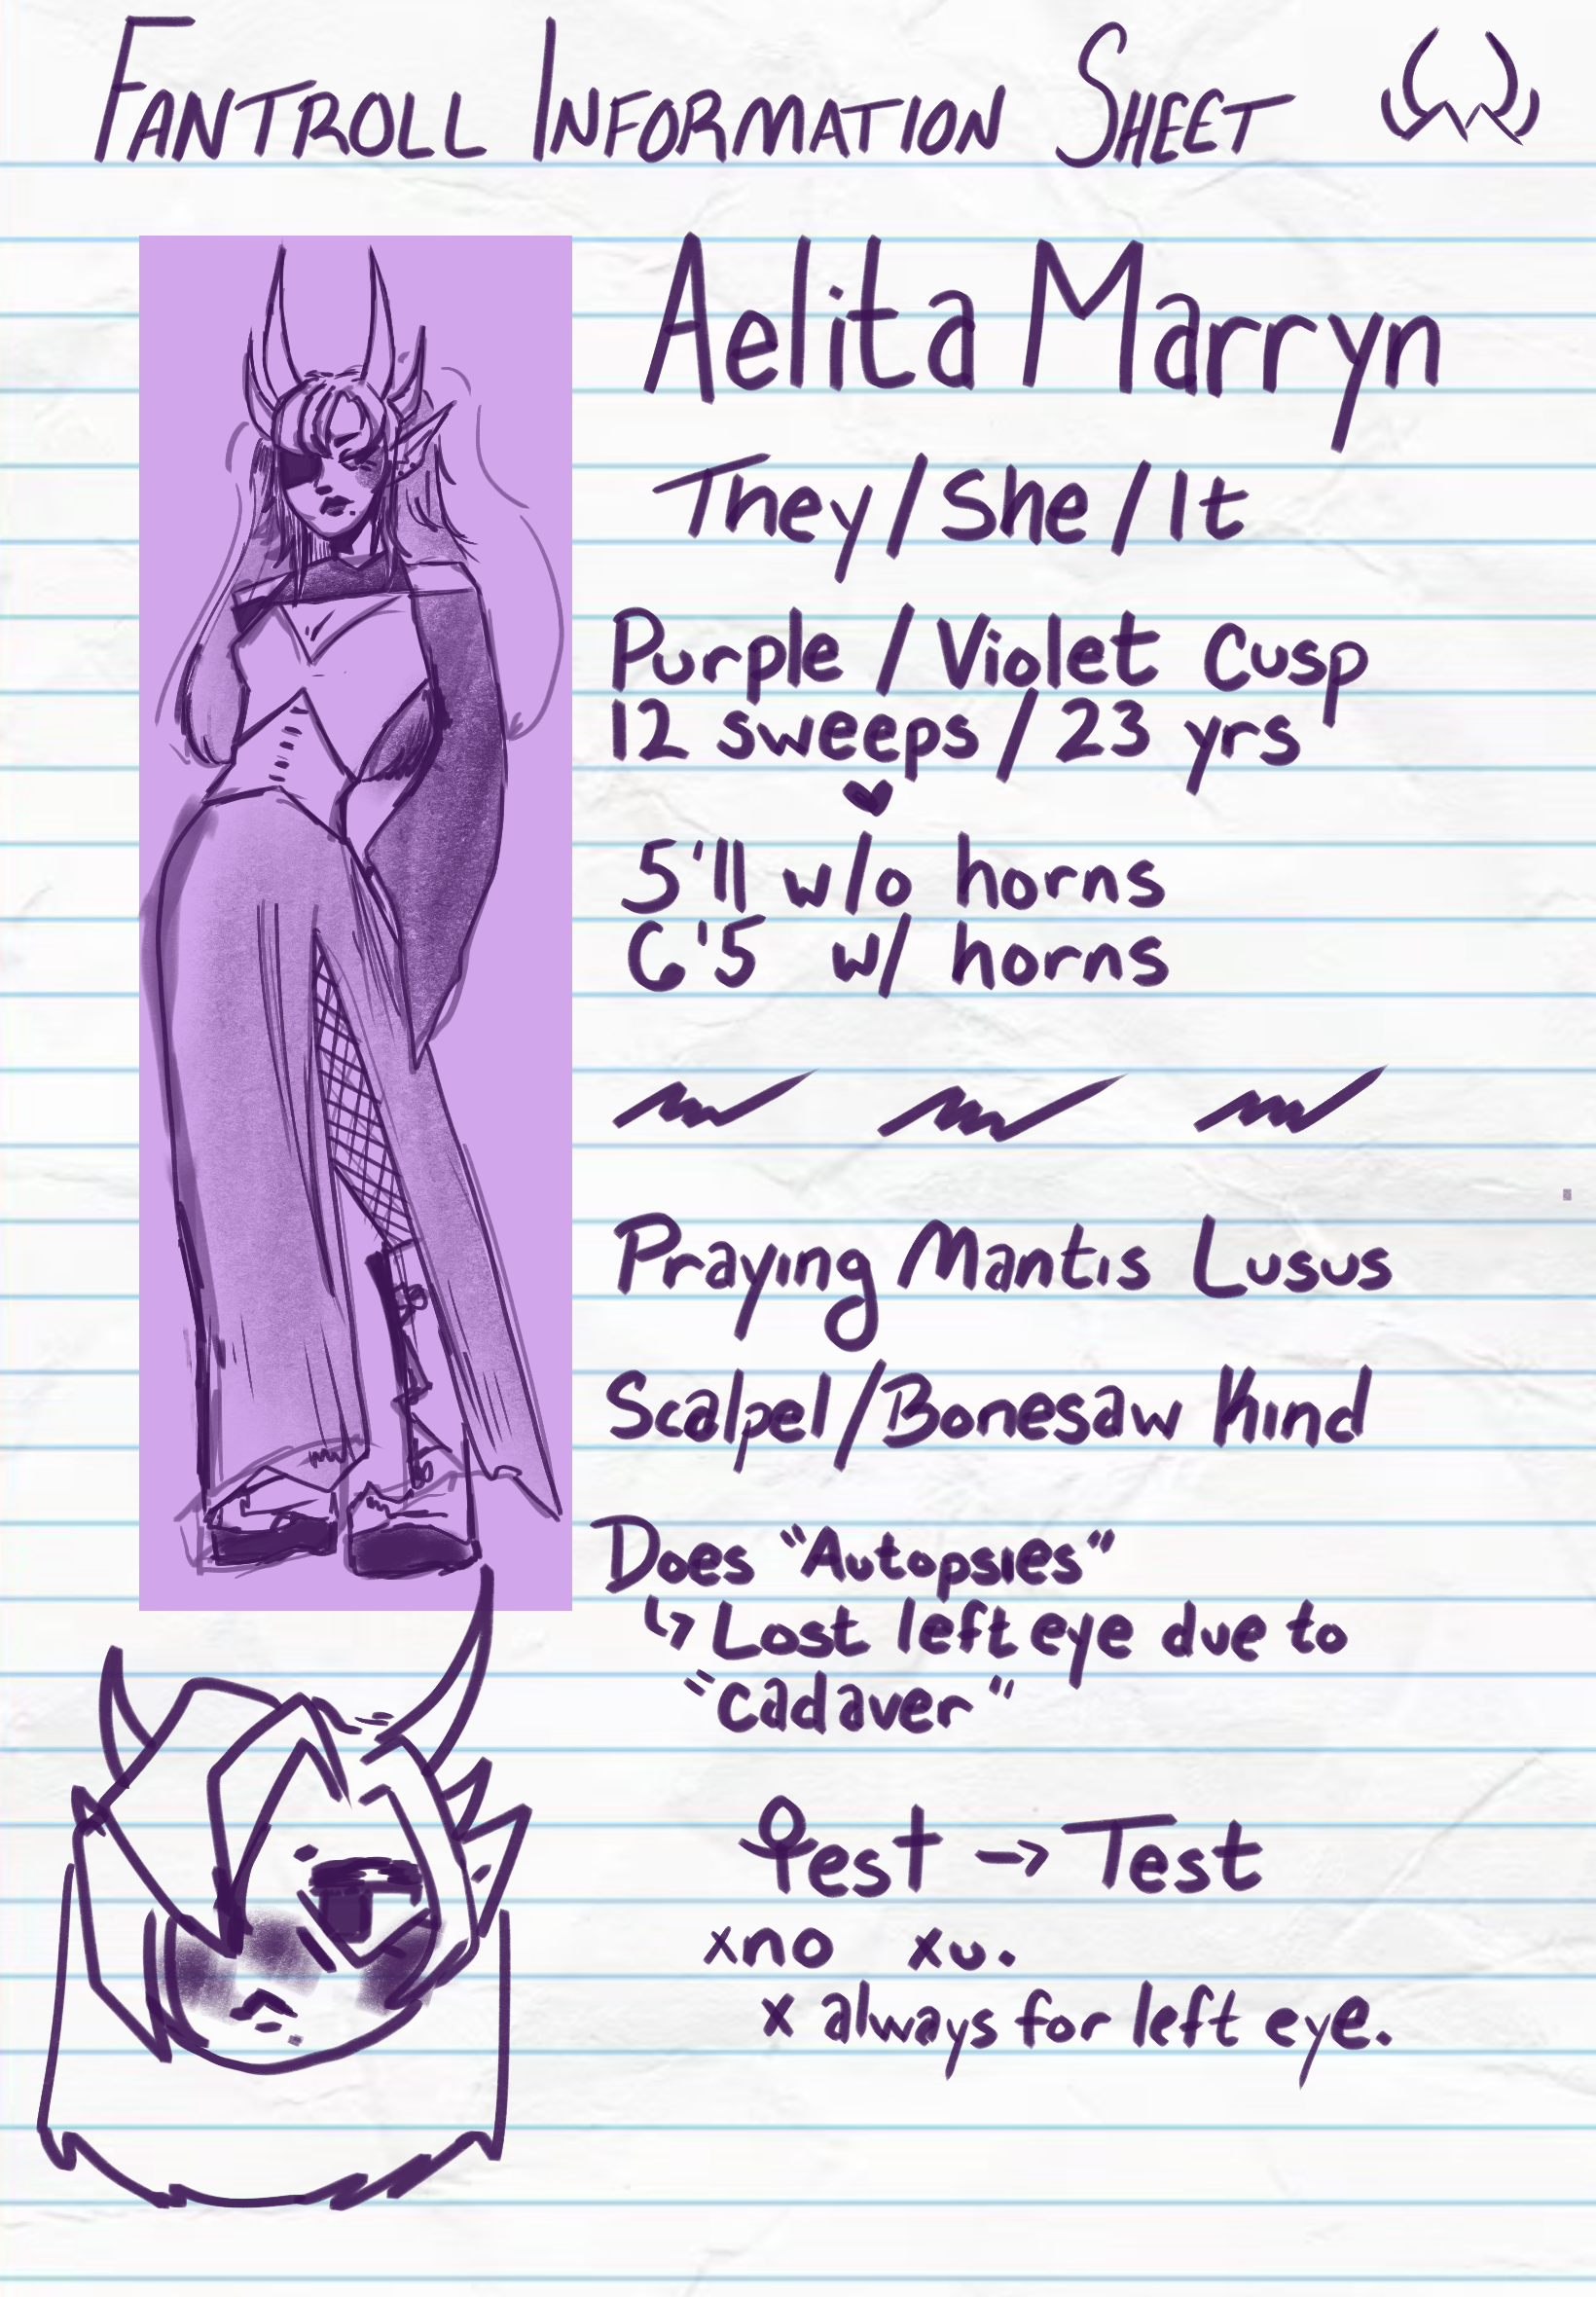 Fantroll Information Sheet
Aelita Marryn
They/She/It
Purple / Violet Cusp
12 sweeps / 23 yrs
5'11 w/o horns
6'5 w/ horns
Praying Mantis Lusus
Scalpel/Bonesaw Kind
Does "Autopsies"
↳ Lost left eye due to
"cadaver"
♀est → Test
xno xu.
x always for left eye.